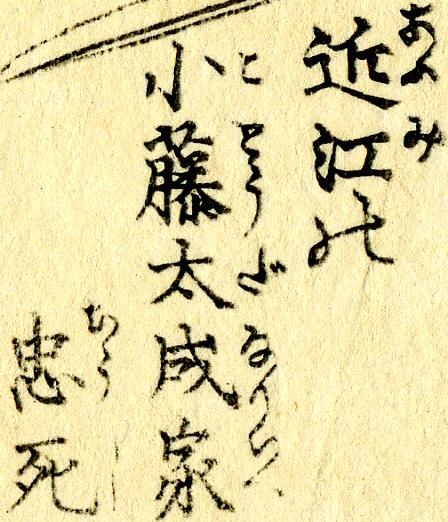 あふみ
近江の
ことうだなりいへ
小藤太成家
ちうし
忠死